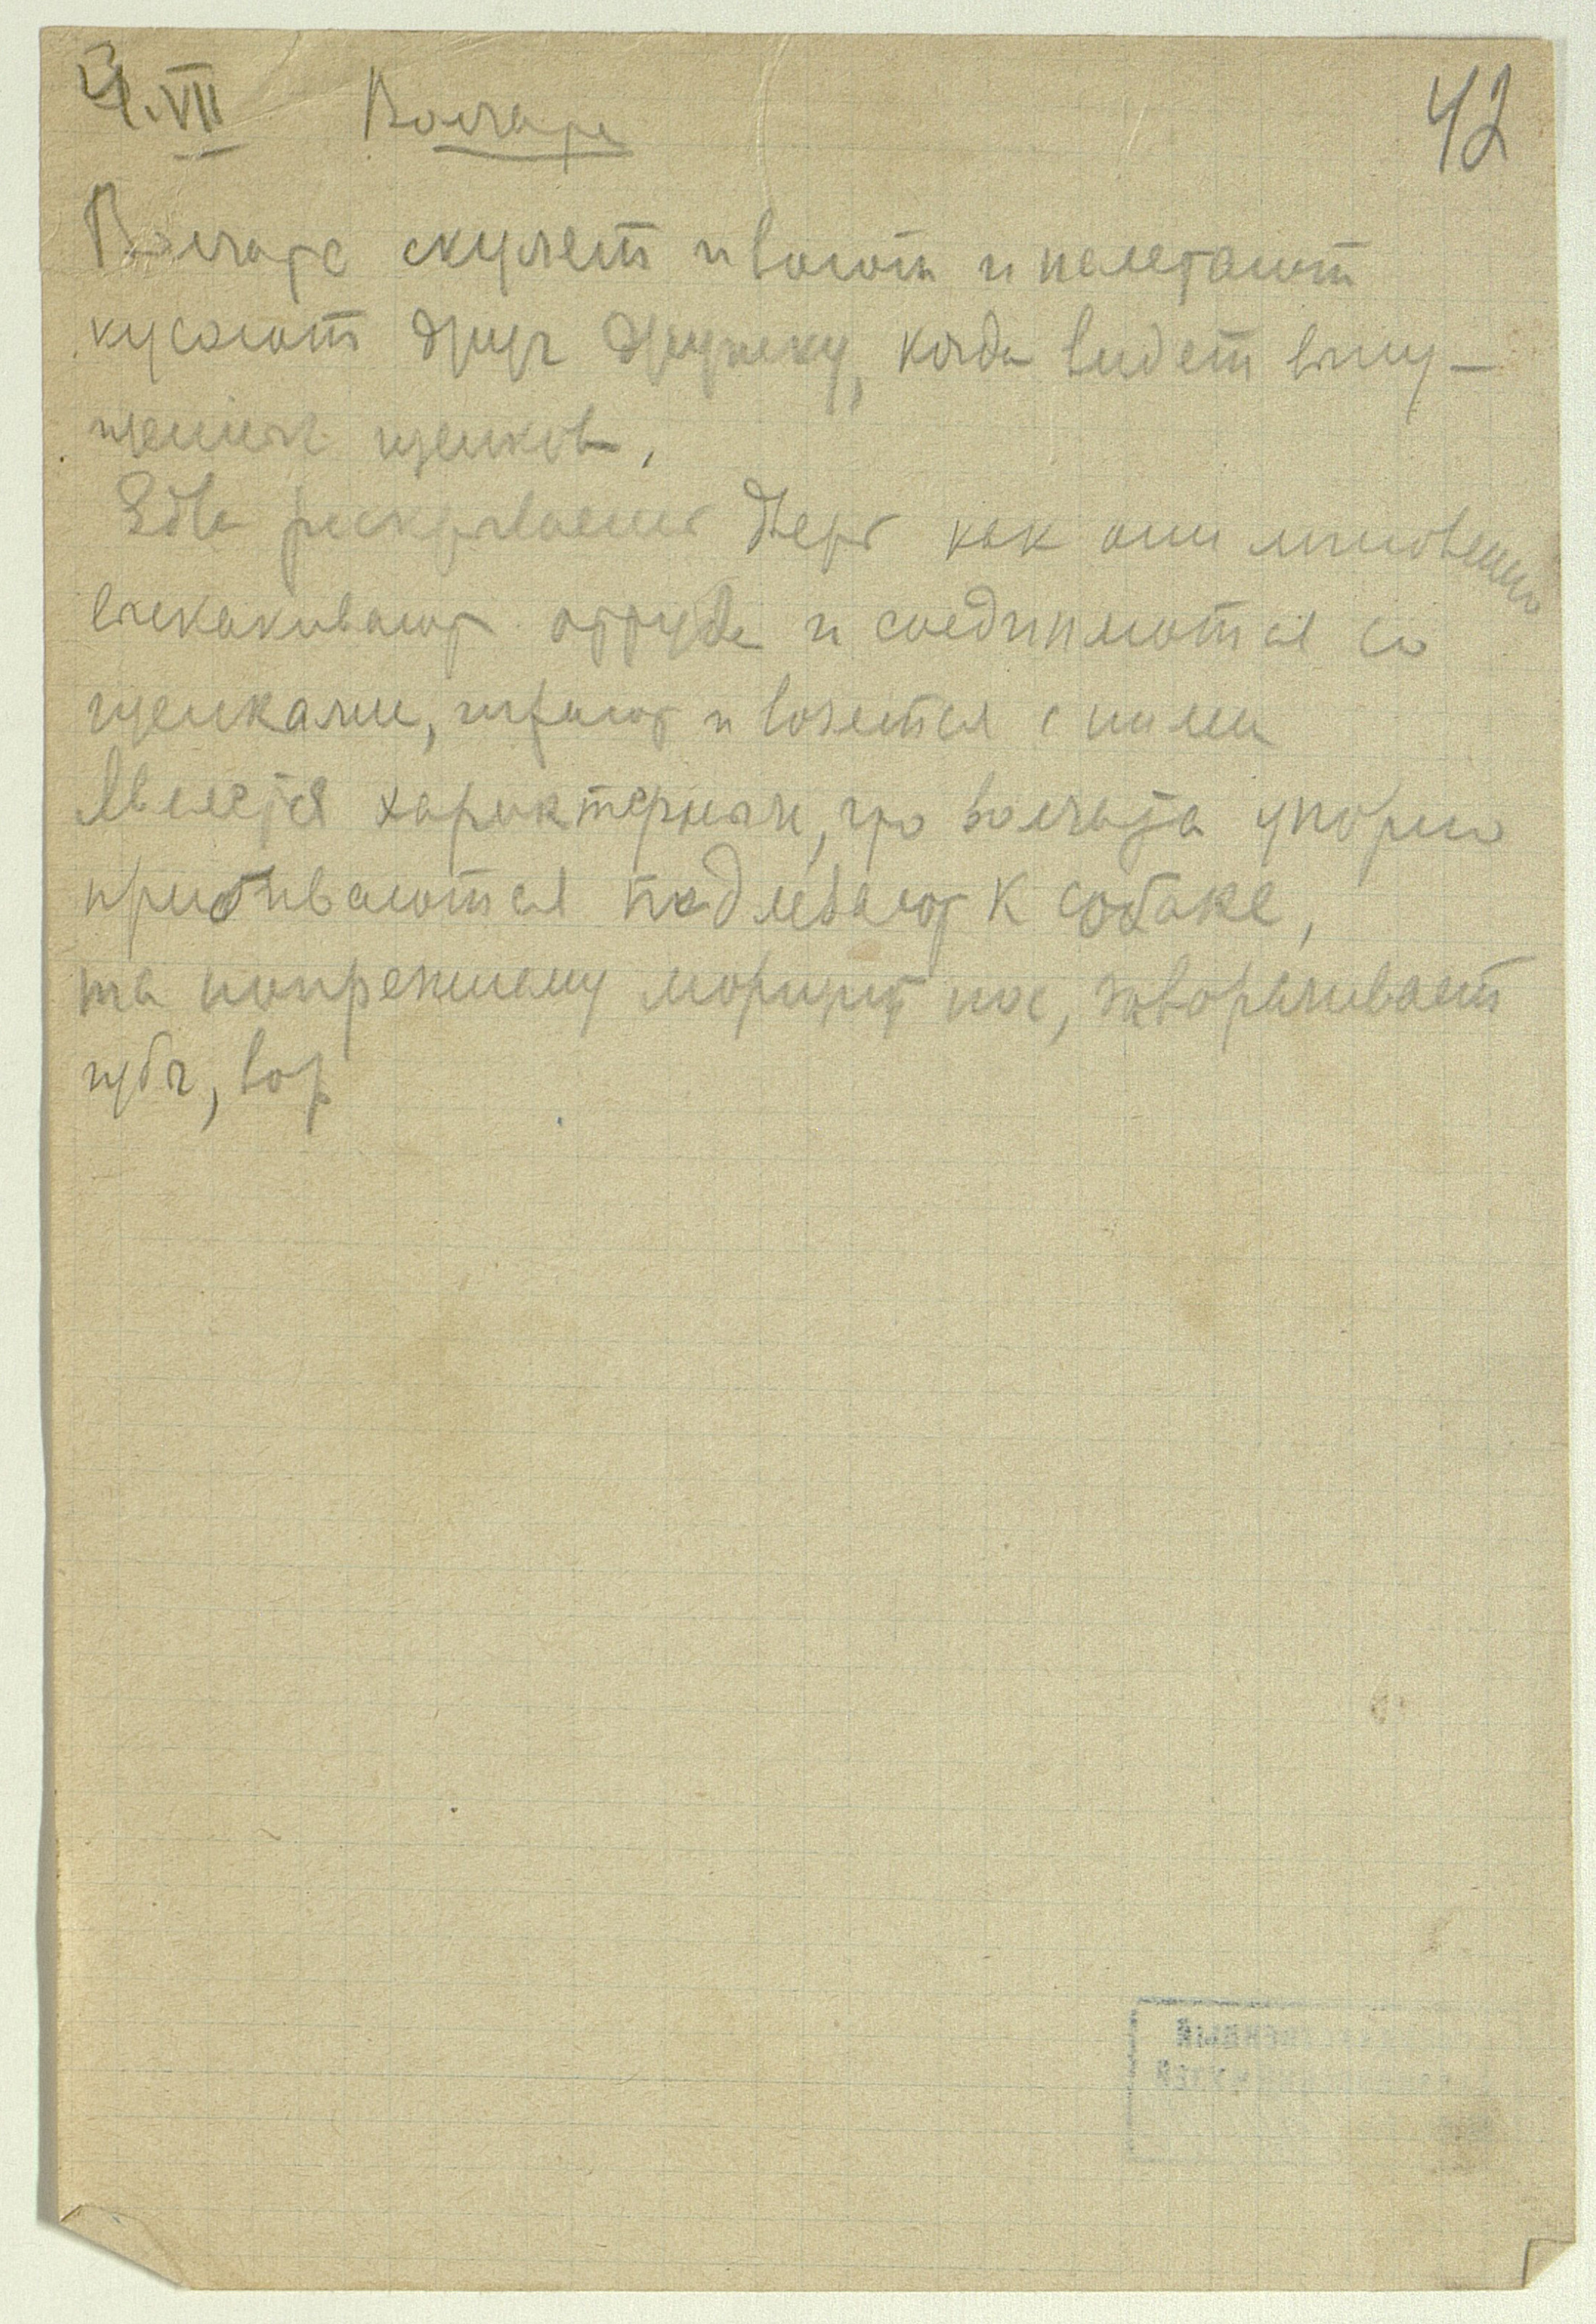 4.VII Волчата 42
Волчата скулят и воют и налетают
кусают друг дружку, когда видят выпу-
щенных щенков.
Едва раскрываешь дверь как они мгновенно
выскакивают оттуда и соединяются со
щенками, играют и возятся с ними
Является характерным, что волчата упорно
подлезают к собаке,
та попрежнему морщит нос, заворачивает
губы,